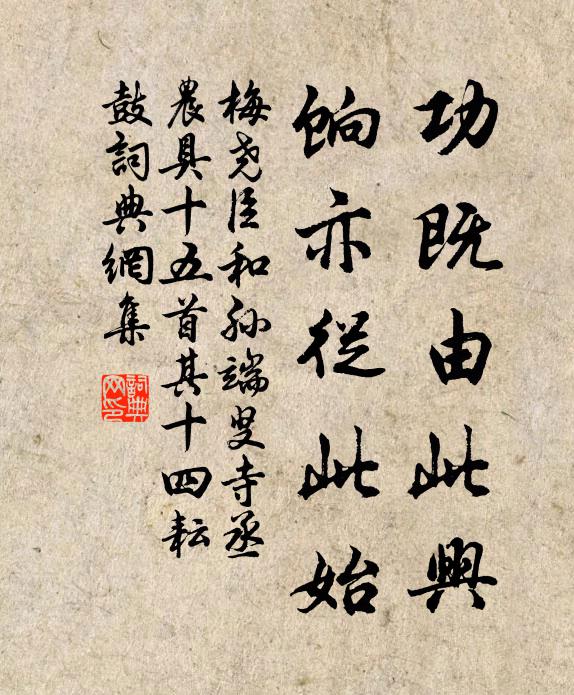 功既由此興
餉亦從此始
梅尧臣和孙端叟寺丞
農具十五首其十四耘
鼓詞典網集
詞典网印